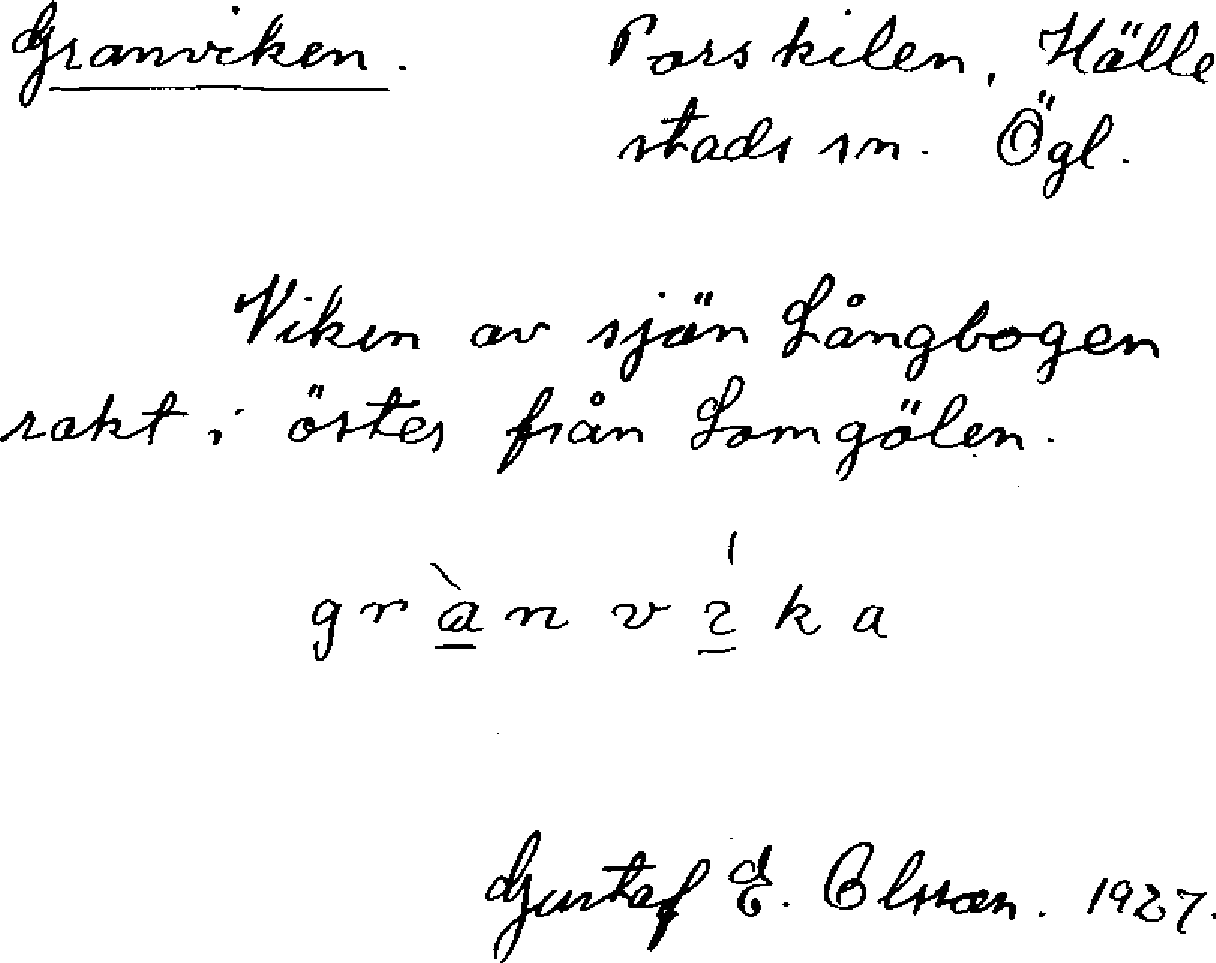 Granviken. Porskilen, Hälle
stads sn. Ögl.
Viken av sjön Långbogen
rakt i öster från Lomgölen.
grànvíka
Gustaf E. Olsson. 1927.